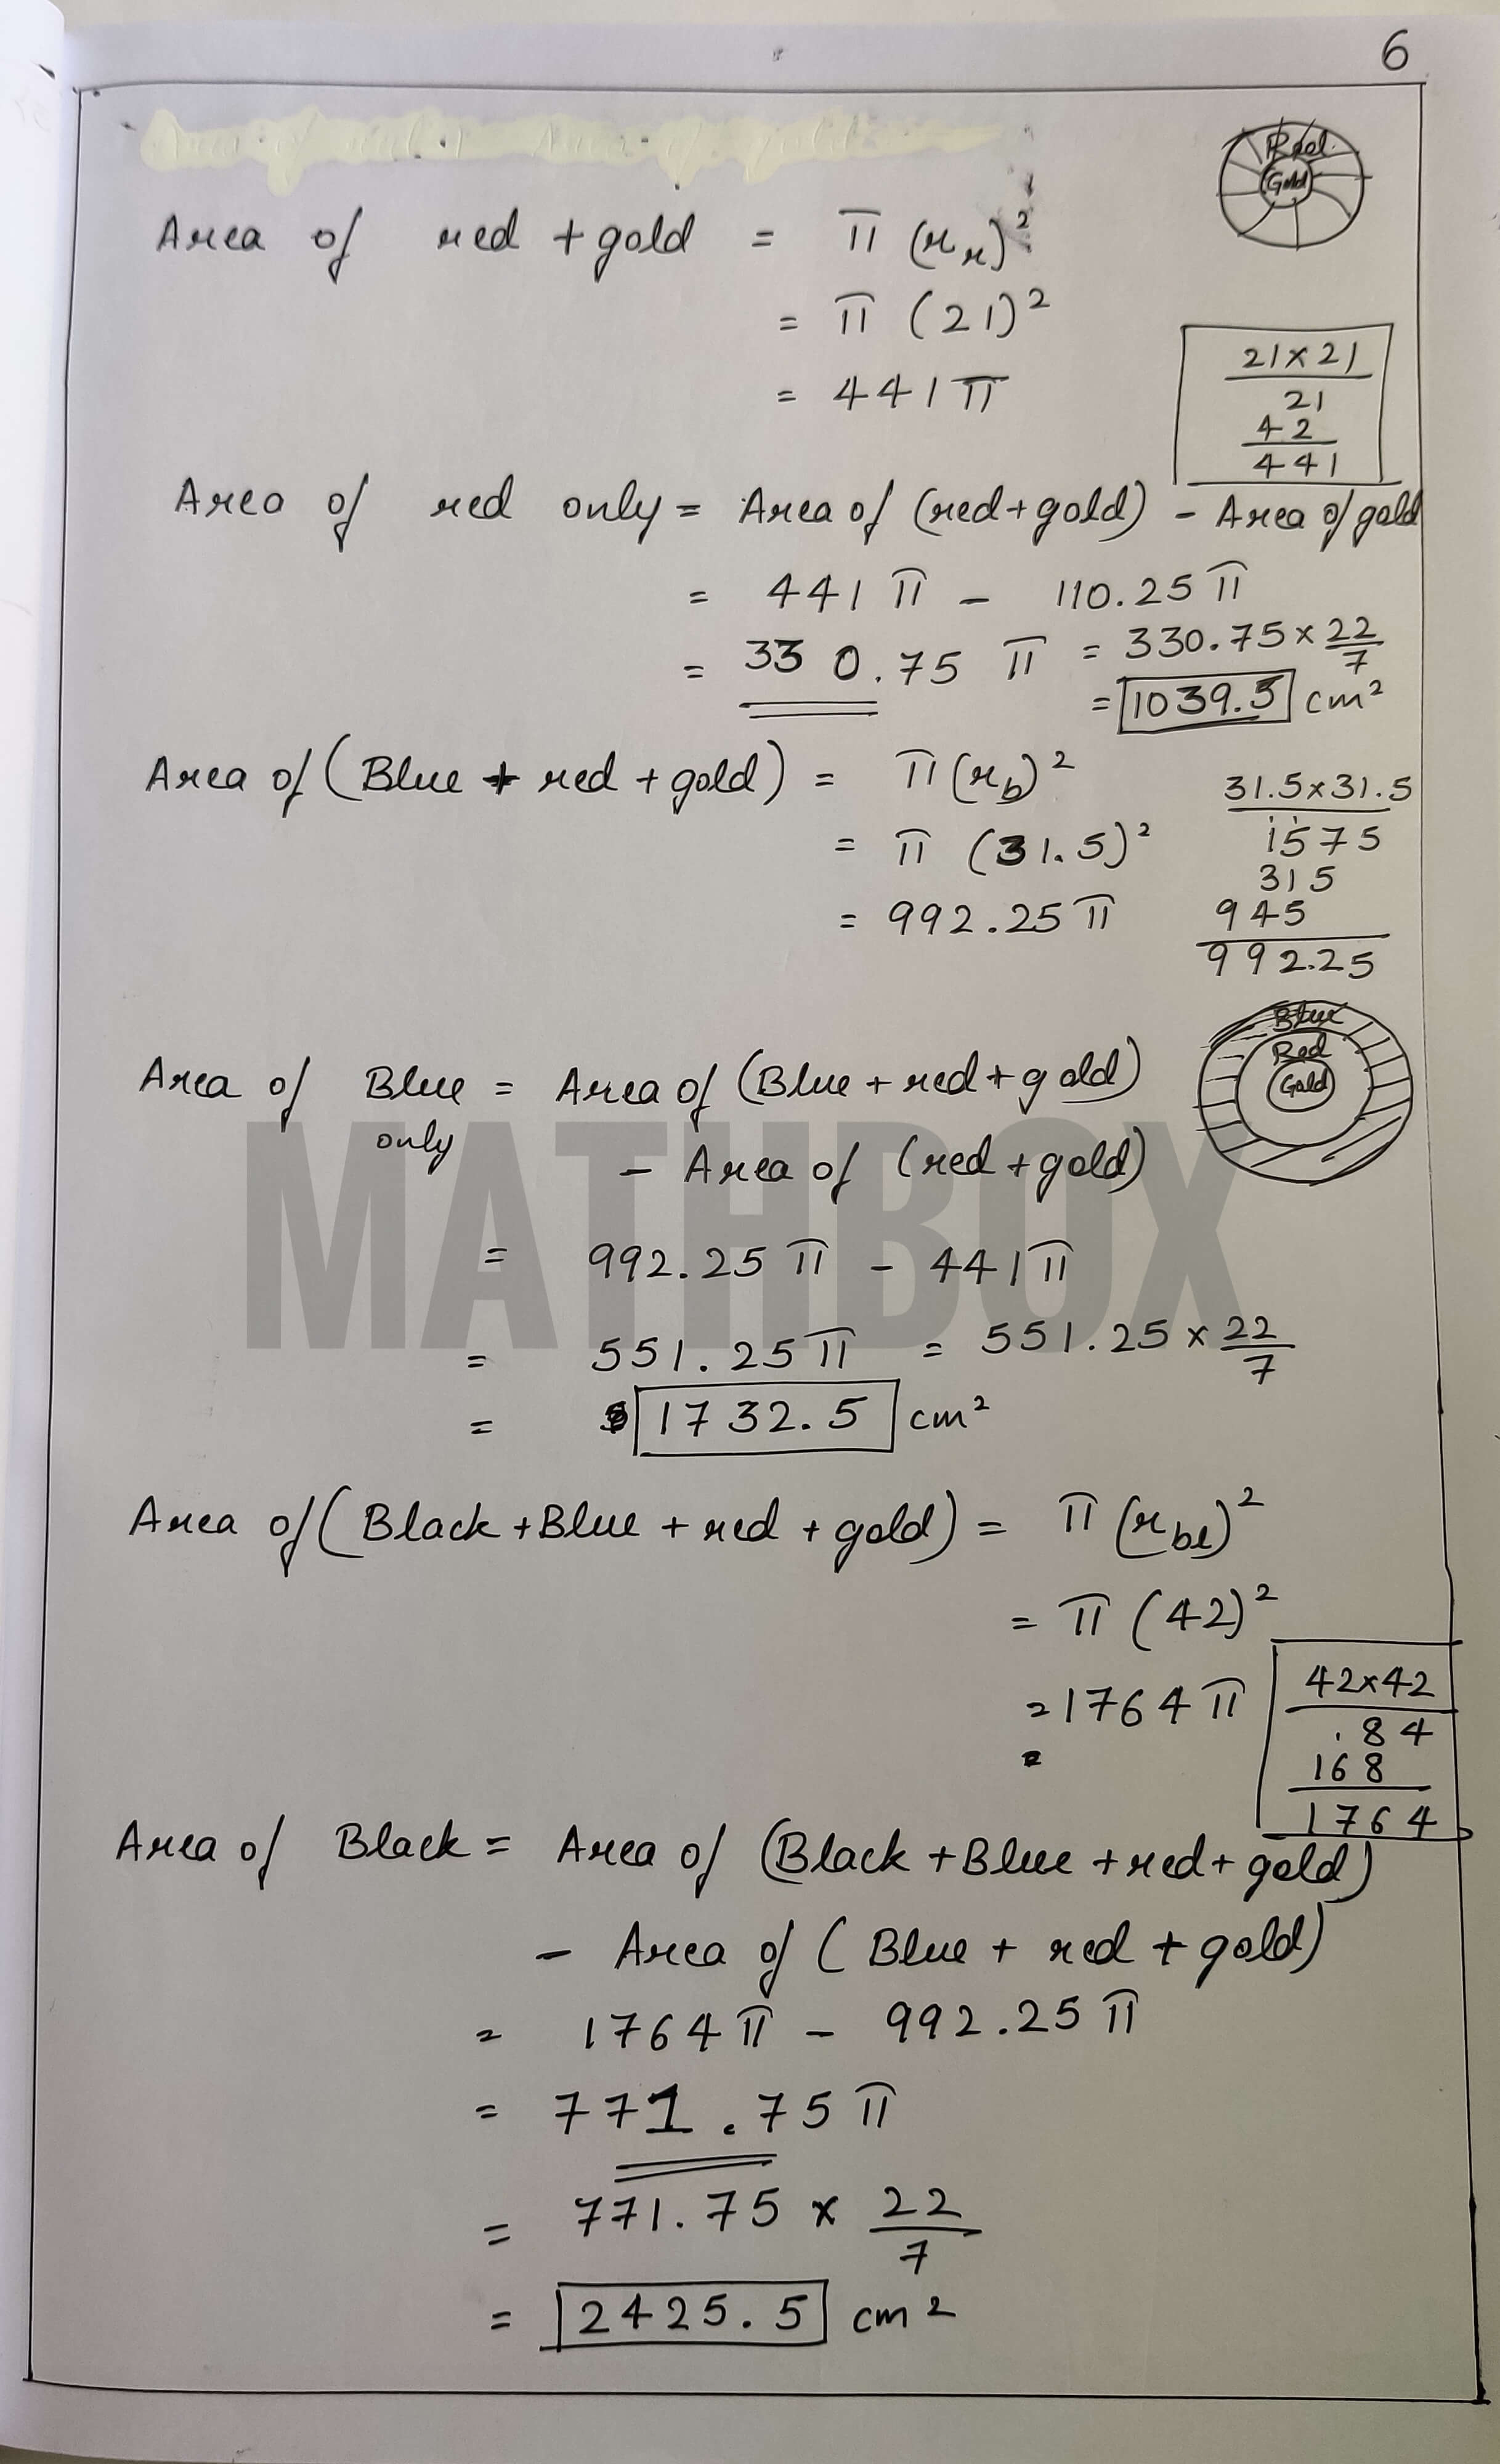 6
Red
Gold
Area of red + gold = π (r_r)²
= π (21)²
= 441 π
21 × 21
21
42
441
Area of red only = Area of (red + gold) - Area of gold
= 441 π - 110.25 π
= 330.75 π = 330.75 × 22/7
= 1039.5 cm²
Area of (Blue + red + gold) = π (r_b)²
= π (31.5)²
= 992.25 π
31.5 × 31.5
1575
315
945
992.25
Blue
Red
Gold
Area of Blue only = Area of (Blue + red + gold)
- Area of (red + gold)
= 992.25 π - 441 π
= 551.25 π = 551.25 × 22/7
= 1732.5 cm²
MATHBOX
Area of (Black + Blue + red + gold) = π (r_bl)²
= π (42)²
= 1764 π
42×42
.84
168
1764
Area of Black = Area of (Black + Blue + red + gold)
- Area of (Blue + red + gold)
= 1764 π - 992.25 π
= 771.75 π
= 771.75 × 22/7
= 2425.5 cm²